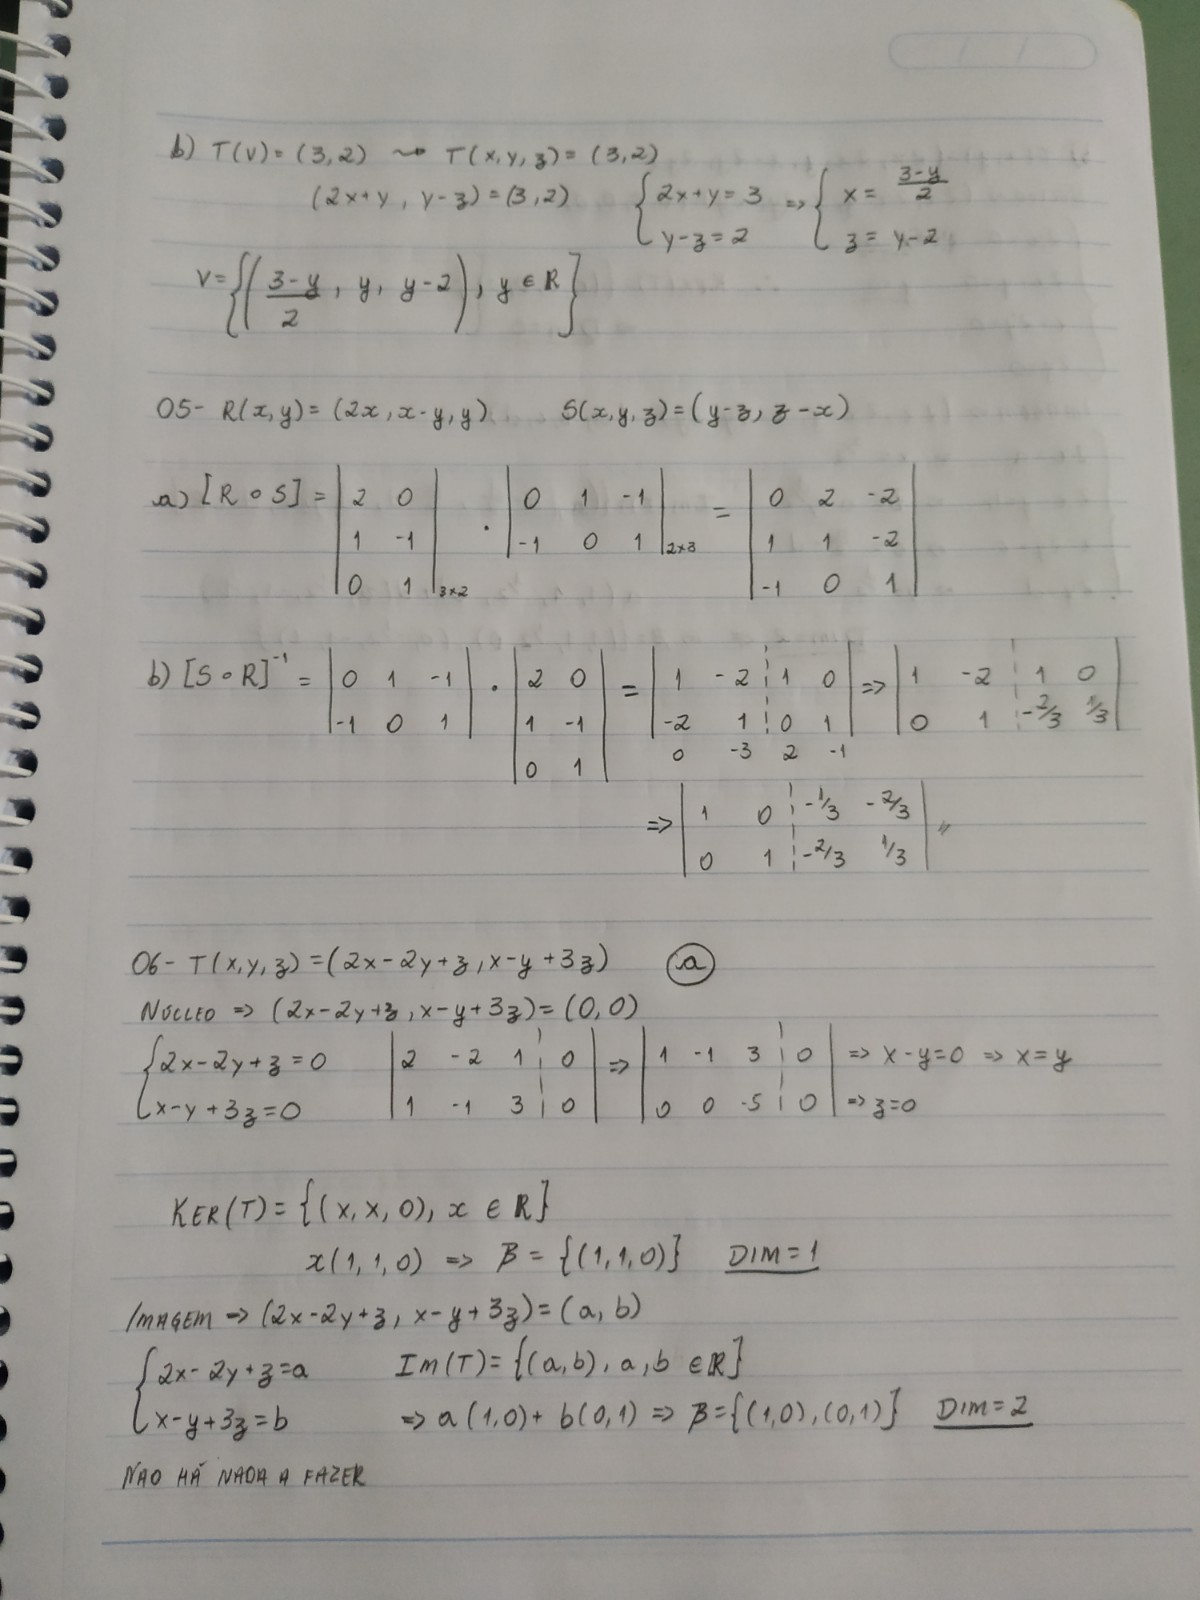 b) T(V) = (3,2) ⤳ T(x,y,z) = (3,2)
(2x+y, y-z) = (3,2) { 2x+y = 3 => { x = (3-y)/2
y-z = 2 z = y-2
V = {( (3-y)/2, y, y-2 ), y ∈ ℝ}
05- R(x,y) = (2x, x-y, y) S(x,y,z) = (y-z, z-x)
a) [R ∘ S] = | 2 0 | · | 0 1 -1 | = | 0 2 -2 |
| 1 -1 | | -1 0 1 |2x3 | 1 1 -2 |
| 0 1 |3x2 | -1 0 1 |
b) [S ∘ R]⁻¹ = | 0 1 -1 | · | 2 0 | = | 1 -2 ¦ 1 0 | => | 1 -2 ¦ 1 0 |
| -1 0 1 | | 1 -1 | | -2 1 ¦ 0 1 | | 0 1 ¦ -2/3 1/3 |
| 0 1 | 0 -3 2 -1
=> | 1 0 ¦ -1/3 -2/3 |
| 0 1 ¦ -2/3 1/3 | //
06- T(x,y,z) = (2x-2y+z, x-y+3z) (a)
NÚCLEO => (2x-2y+z, x-y+3z) = (0,0)
{ 2x-2y+z = 0 | 2 -2 1 ¦ 0 | => | 1 -1 3 ¦ 0 | => x-y=0 => x=y
x-y+3z = 0 | 1 -1 3 ¦ 0 | | 0 0 -5 ¦ 0 | => z=0
KER(T) = {(x,x,0), x ∈ ℝ}
x(1,1,0) => β = {(1,1,0)} DIM=1
IMAGEM => (2x-2y+z, x-y+3z) = (a,b)
{ 2x-2y+z = a Im(T) = {(a,b), a,b ∈ ℝ}
x-y+3z = b => a(1,0) + b(0,1) => β = {(1,0),(0,1)} DIM=2
NAO HÁ NADA A FAZER